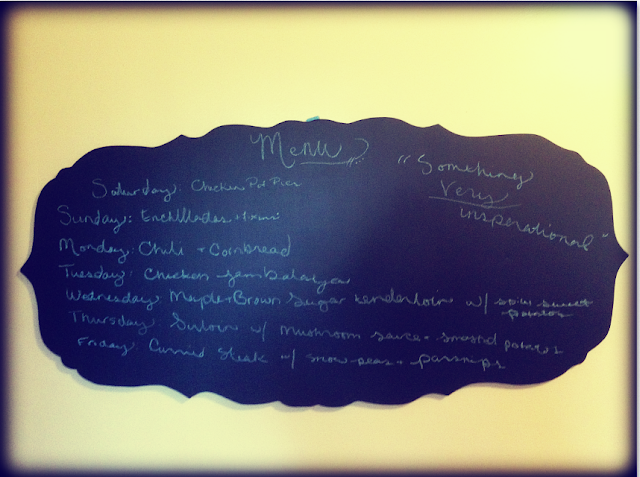 Menu
"Something
Very
insperational"
Saturday: Chicken Pot Pies
Sunday: Enchilladas +
Monday: Chili + Cornbread
Tuesday: Chicken Jambalaya
Wednesday: Maple Brown Sugar tenderloin w/ sweet
potatos
Thursday: Sirloin w/ Mushroom sauce + smashd potatos
Friday: Curried Steak w/ snow peas + parsnips